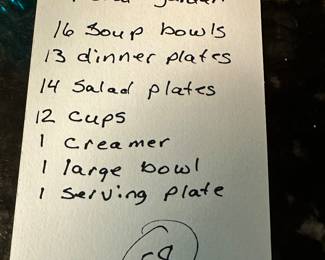 16 Soup bowls
13 dinner plates
14 Salad plates
12 cups
1 Creamer
1 large bowl
1 Serving plate
58